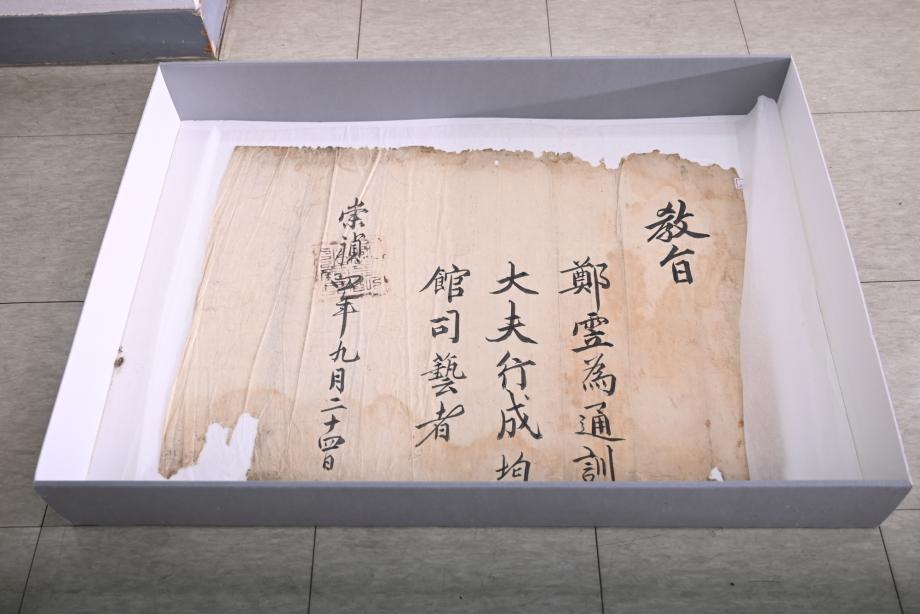 教旨
鄭霊為通訓
大夫行成均
館司藝者
崇禎四年九月二十四日